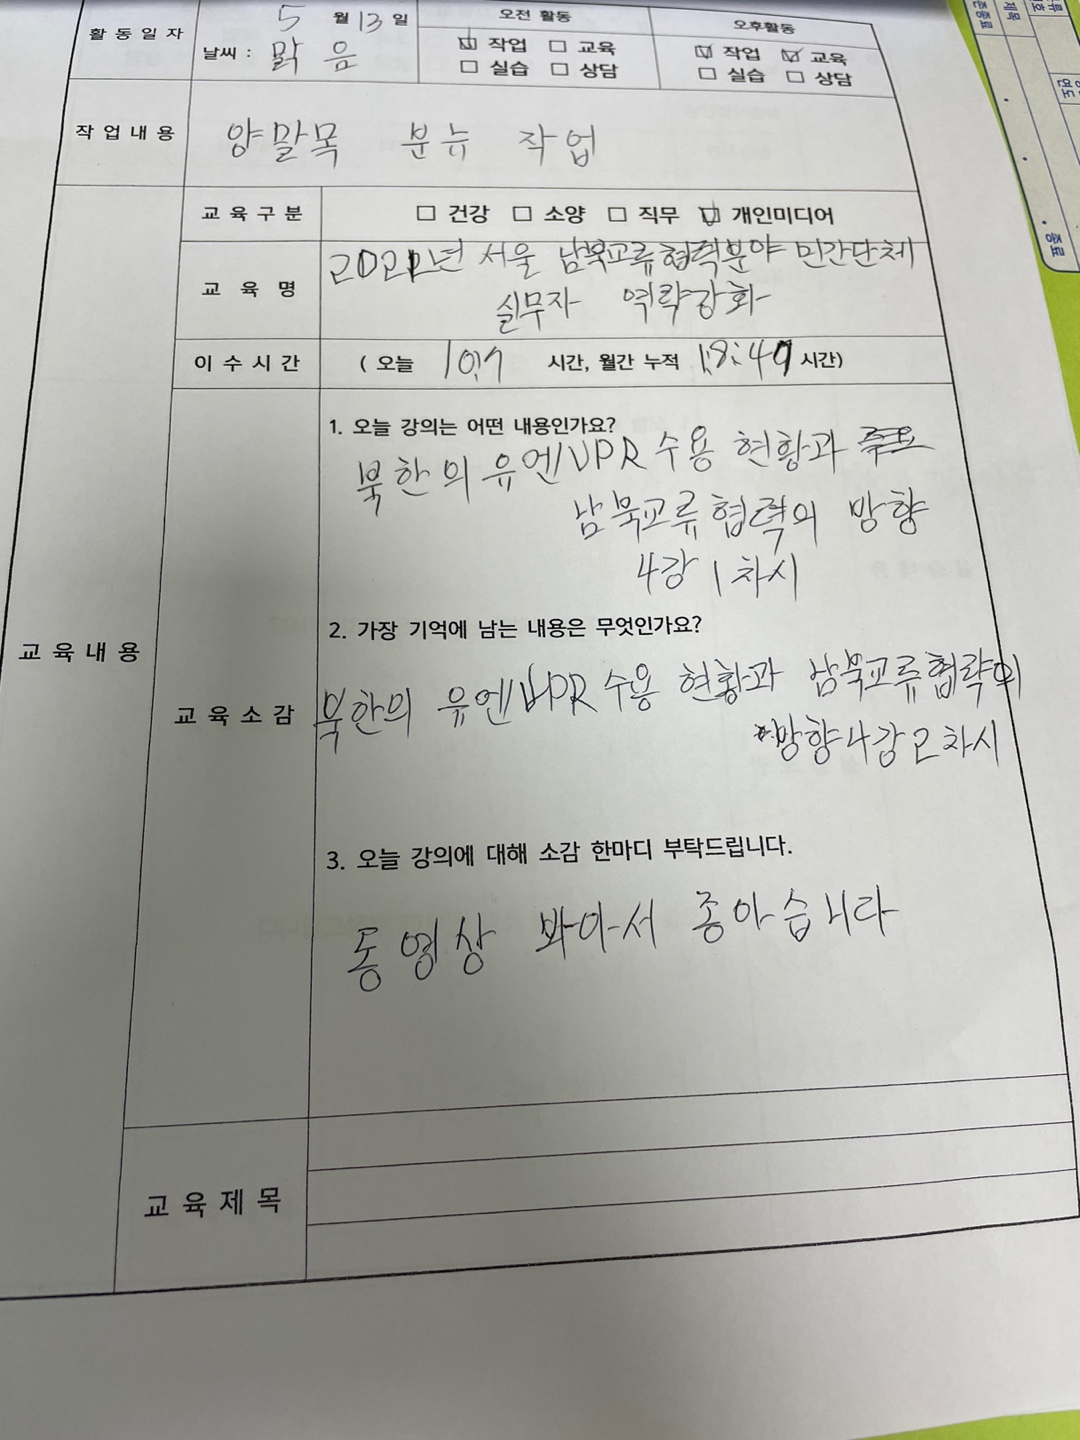 활동일자
5 월 13 일
날씨 : 맑음
오전 활동
☑ 작업 ☐ 교육
☐ 실습 ☐ 상담
오후활동
☑ 작업 ☑ 교육
☐ 실습 ☐ 상담
작업내용
양말목 분뉴 작업
교육내용
교육구분
☐ 건강 ☐ 소양 ☐ 직무 ☑ 개인미디어
교육명
2022년 서울 남북교류협력분야 민간단체
실무자 역략강화
이수시간
( 오늘 시간, 월간 누적 시간)
교육소감
1. 오늘 강의는 어떤 내용인가요?
북한의 유엔UPR 수용 현황과
남북교류협력의 방향
4강 1차시
2. 가장 기억에 남는 내용은 무엇인가요?
북한의 유엔UPR 수용 현황과 남북교류협략의
방향4강2차시
3. 오늘 강의에 대해 소감 한마디 부탁드립니다.
동영상 봐아서 종아습니다
교육제목
종료